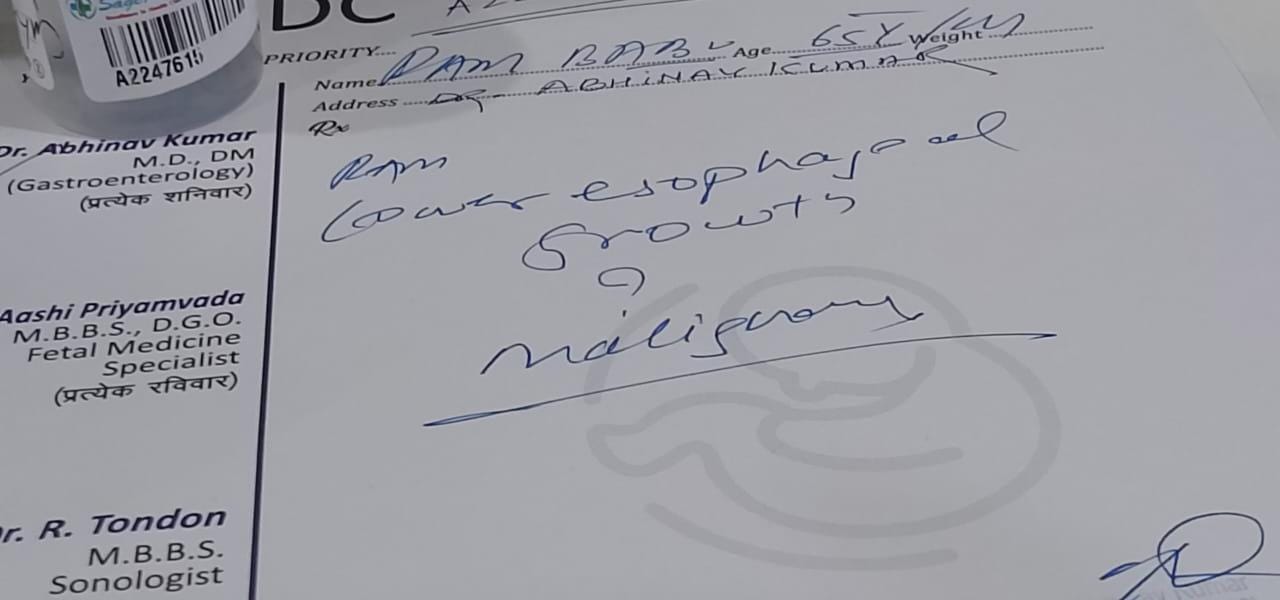 Sage
A2247615
DC
A 22
PRIORITY....
Name RAM BABU Age 65Y/M Weight
Address Dr- ABHINAV KUMAR
Rx
Dr. Abhinav Kumar
M.D., DM
(Gastroenterology)
(प्रत्येक शनिवार)
RAM
Lower esophageal
Growth
?
malignancy
Aashi Priyamvada
M.B.B.S., D.G.O.
Fetal Medicine
Specialist
(प्रत्येक रविवार)
Dr. R. Tondon
M.B.B.S.
Sonologist